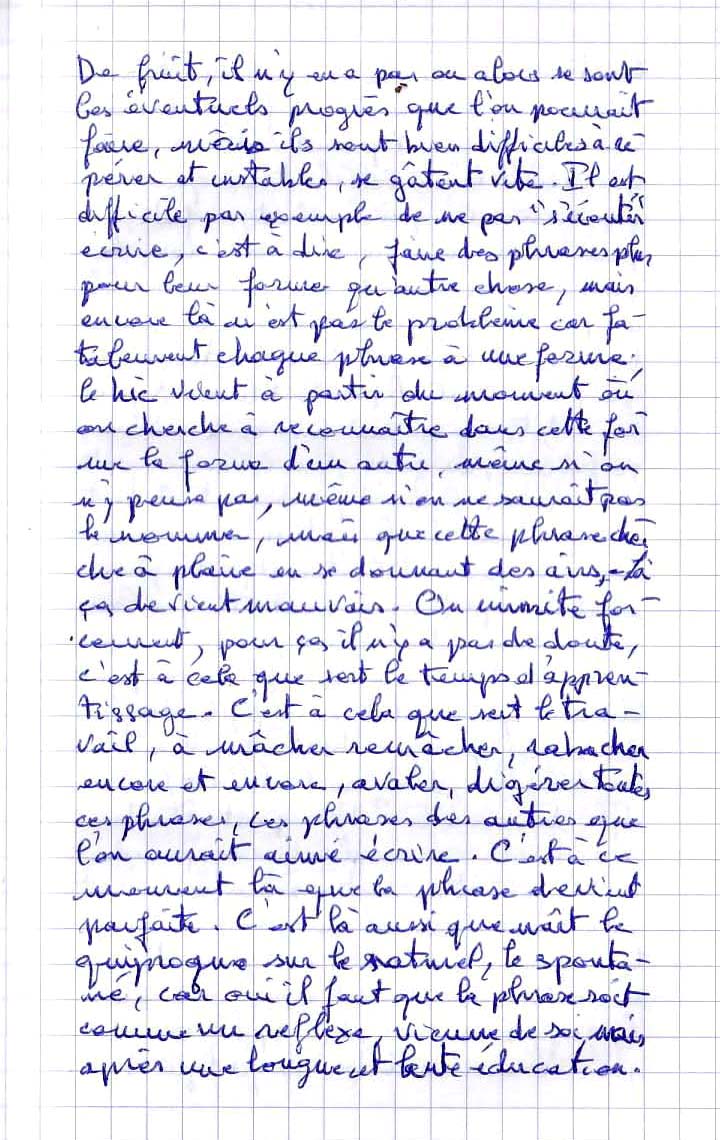 De fruit, il n'y en a pas ou alors se sont
les éventuels progrès que l'on pourrait
faire, mais ils sont bien difficiles à ré-
pérer et instables, se gâtent vite. Il est
difficile par exemple de ne pas "s'écouter"
écrire, c'est à dire, faire des phrases plus
pour leur forme qu'autre chose, mais
encore là n'est pas le problème car fa-
talement chaque phrase à une forme ;
le hic vient à partir du moment où
on cherche à reconnaître dans cette for-
me la forme d'un autre, même si on
n'y pense pas, même si on ne saurait pas
le nommer, mais que cette phrase cher-
che à plaire en se donnant des airs, - là
ça devient mauvais. On immite for-
cement, pour ça il n'y a pas de doute,
c'est à cela que sert le temps d'appren-
tissage. C'est à cela que sert le tra-
vail, à mâcher remâcher, rabacher
encore et encore, avaler, digérer toutes
ces phrases, ces phrases des autres que
l'on aurait aimé écrire. C'est à ce
moment là que la phrase devient
parfaite. C'est là aussi que naît le
quiproquo sur le naturel, le sponta-
né, car oui il faut que la phrase soit
comme un reflexe, vienne de soi, mais
après une longue et lente éducation.